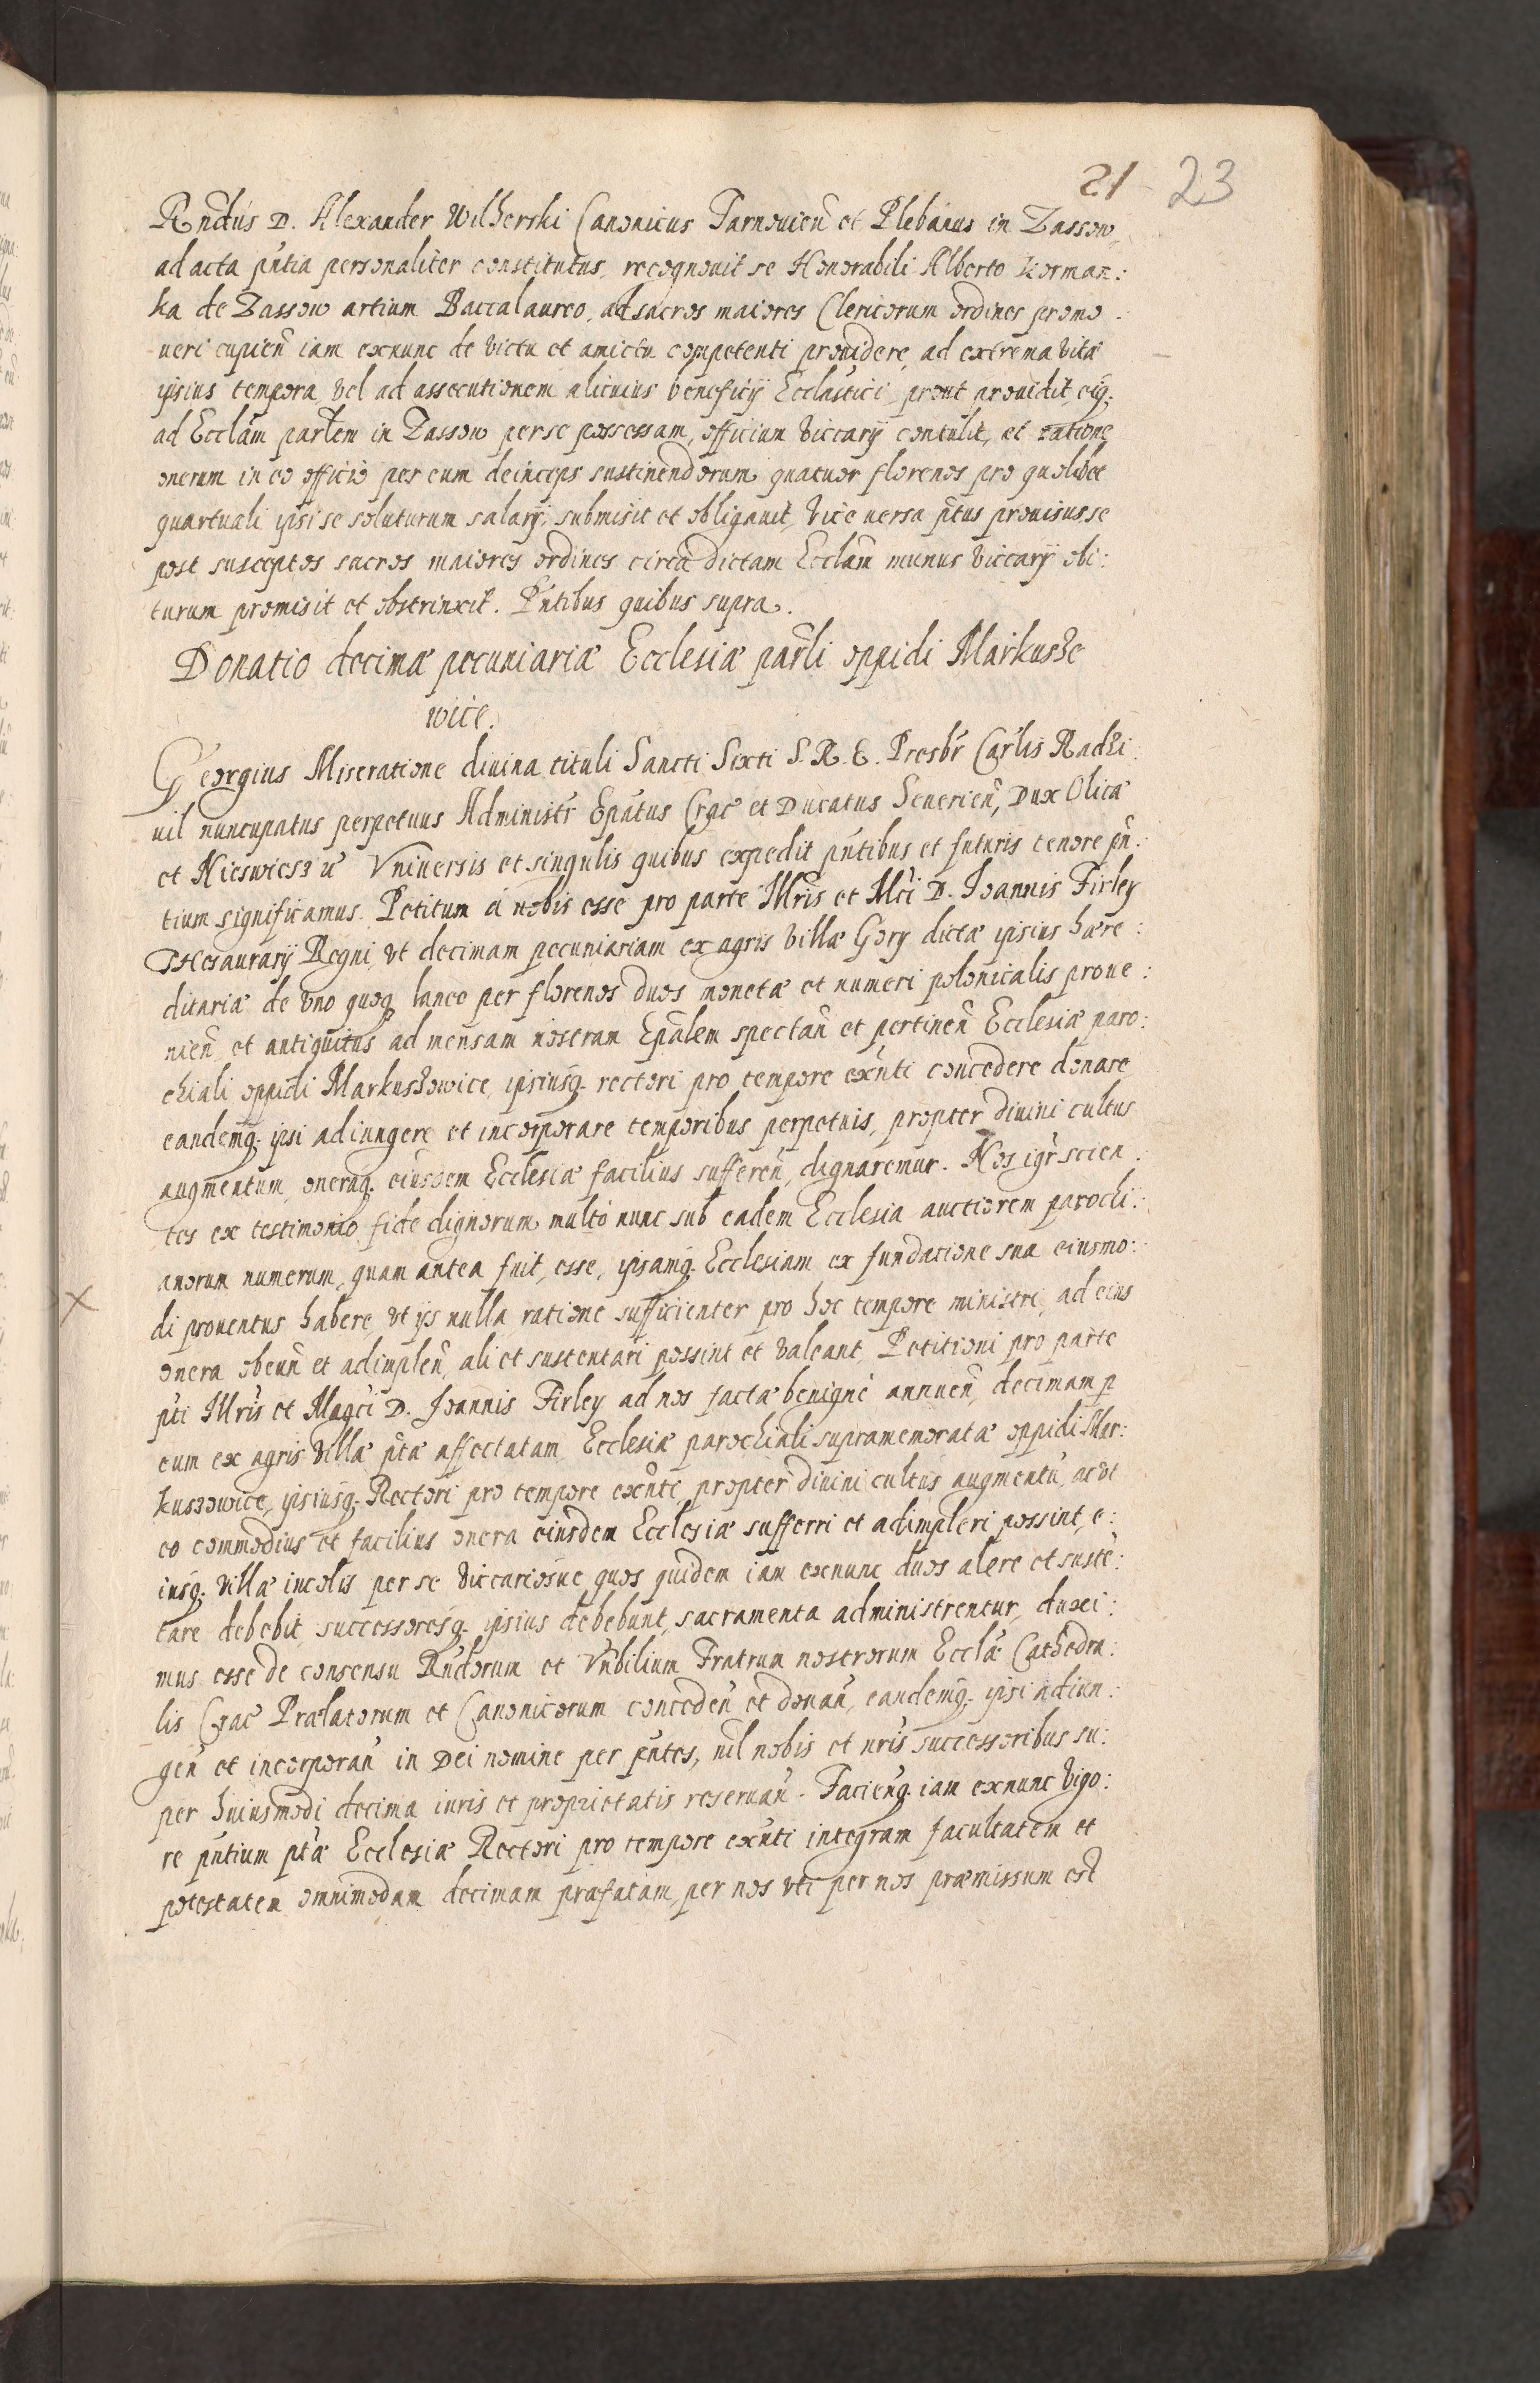 21 23
Rndus D. Alexander Wilherski Canonicus Tarnouień et Plebanus in Zassow
ad acta pntia personaliter constitutus, recognouit se Honorabili Alberto Korman:
ka de Zassow artium Baccalaureo, ad sacros maiores Clericorum ordines promo
ueri cupień iam exnunc de victu et amictu competenti prouidere, ad extrema vitæ
ipsius tempora, vel ad assecutionem alicuius beneficij Ecclastici, prout prouidit, eiq.
ad Ecclam parlem in Zassow per se possessam, officium viccarij contulit, et ratione
onerum in eo officio per eum deinceps sustinendorum quatuor florenos pro quolibet
quartuali ipsi se soluturum salarij, submisit et obligauit, vice uersa ptus prouisus se
post susceptos sacros maiores ordines circa dictam Ecclam munus viccarij obi:
turum promisit et obstrinxit. Pntibus quibus supra.
Donatio decimæ pecuniariæ Ecclesiæ parli oppidi Markusze
wice.
Georgius Miseratione diuina tituli Sancti Sixti S. R. E. Presbr Carlis Radzi:
uil nuncupatus perpetuus Administr Epatus Crac et Ducatus Seuerień, Dux Olicæ
et Nieswiesz etc Vniuersis et singulis quibus expedit pntibus et futuris tenore pn:
tium significamus. Petitum a nobis esse pro parte Illris et Mci D. Joannis Firley
Thesaurarij Regni, vt decimam pecuniariam ex agris villæ Gory dictæ ipsius hære:
ditariæ de vno quoq lanco per florenos duos monetæ et numeri polonicalis proue:
nień et antiquitus ad mensam nostram Epalem spectań et pertineń Ecclesiæ paro:
chiali oppidi Markuszowice, ipsiusq. rectori pro tempore exnti concedere donare
eandemq. ipsi adiungere et incorporare temporibus perpetuis, propter diuini cultus
augmentum, oneraq. eiusdem Ecclesiæ facilius suffereń, dignaremur. Nos igr scien:
tes ex testimonio fide dignorum multo nunc sub eadem Ecclesia auctiorem parochi:
anorum numerum, quam antea fuit, esse, ipsamq. Ecclesiam ex fundatione sua eiusmo:
di prouentus habere, vt ijs nulla ratione sufficienter pro hoc tempore ministri, ad eius
onera obeuń et adimpleń, ali et sustentari possint et valeant, Petitioni pro parte
pti Illris et Magci D. Joannis Firley ad nos factæ benigne annueń, decimam p
eum ex agris villæ ptæ affectatam Ecclesiæ parochiali supramemoratæ oppidi Mar:
kuszowice, ipsiusq. Rectori pro tempore exnti, propter diuini cultus augmentu, ac vt
eo commodius et facilius onera eiusdem Ecclesiæ sufferri et adimpleri possint, e:
iusq. villæ incolis per se viccariosue quos quidem iam exnunc duos alere et suste:
tare debebit, successoresq. ipsius debebunt, sacramenta administrentur, duxi:
mus esse de consensu Rndorum et Vnbilium Fratrum nostrorum Ecclæ Cathedra:
lis Crac Prælatorum et Canonicorum concedeń et donań, eandemq. ipsi adiun:
geń et incorporań in Dei nomine per pntes, nil nobis et nris successoribus su:
per huiusmodi decima iuris et proprietatis reseruań. Facieńq. iam exnunc vigo:
re pntium ptæ Ecclesiæ Rectori pro tempore exnti integram facultatem et
potestatem omnimodam decimam præfatam, per nos vti per nos præmissum est
X